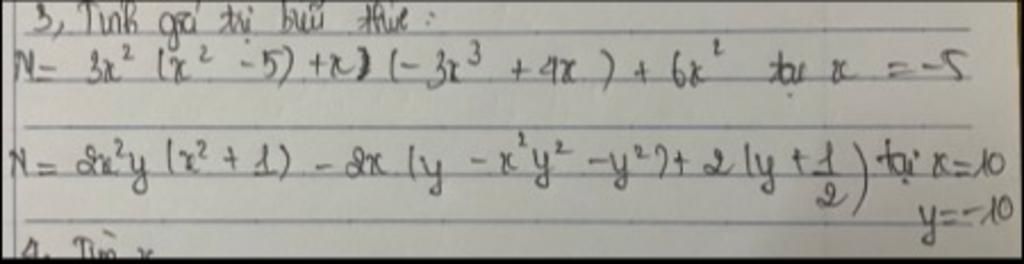 3, Tính giá trị biểu thức :
N = 3x² (x² - 5) + x) (- 3x³ + 4x ) + 6x² tại x = -5
N = 2x²y (x² + 1) - 2x (y - x²y² - y²) + 2 (y + 1/2) tại x=10
y=-10
4. Tìm x